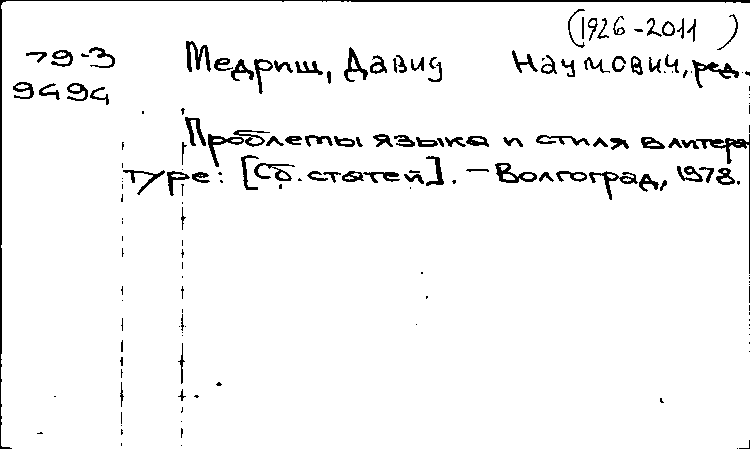 (1926-2011)
79-3 Медриш, Давид Наумович, ред.
9494
Проблемы языка и стиля в литера-
туре: [Сб. статей]. — Волгоград, 1978.